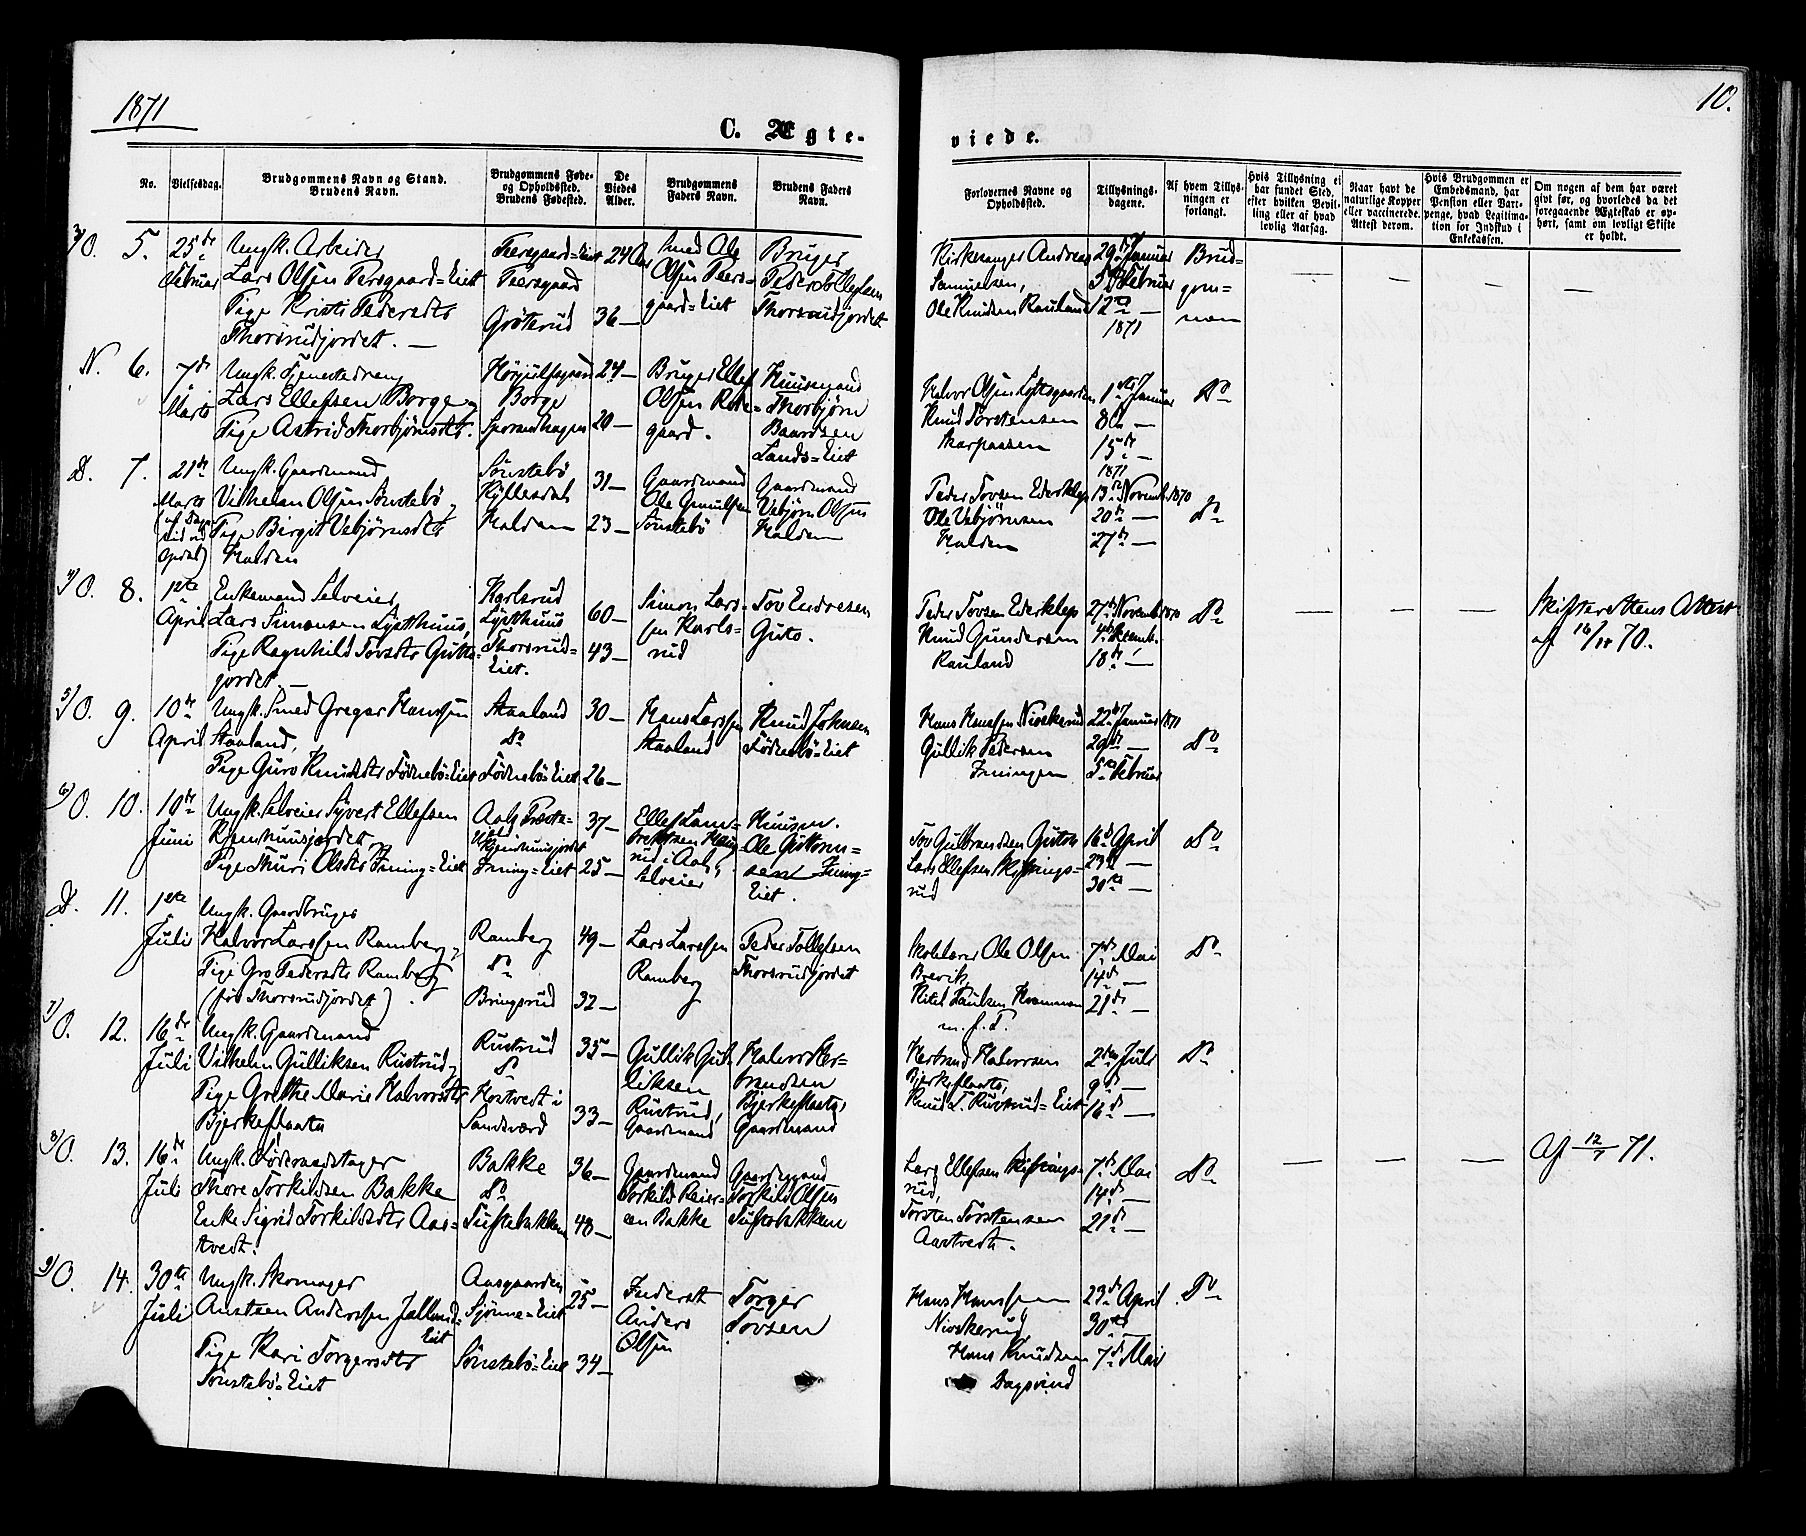 1871
10.
C. Ægte-
viede.
No.
Vielsesdag.
Brudgommens Navn og Stand.
Brudens Navn.
Brudgommens Føde-
og Opholdssted.
Brudens Fødested.
De
Viedes
Alder.
Brudgommens
Faders Navn.
Brudens Faders
Navn.
Forlovernes Navne og
Opholdssted.
Tillysnings-
dagene.
Af hvem Tillys-
ningen er
forlangt.
Hvis Tillysning ei
har fundet Sted,
efter hvilken Bevil-
ling eller af hvad
lovlig Aarsag.
Naar havt de
naturlige Kopper
eller vaccinerede.
Attest derom.
Hvis Brudgommen er
Embedsmand, har
Pension eller Vart-
penge, hvad Legitima-
tion for Indskud i
Enkekassen.
Om nogen af dem har været
givt før, og hvorledes da det
foregaaende Ægteskab er op-
hørt, samt om lovligt Skifte
er holdt.
3/O. 5.
25de
Februar
Ungk. Arbeider
Lars Olsen Teersgaard-Eiet
Pige Kristi Pedersdtr
Thorsrudjordet. —
Teersgaard-Eiet
Teersgaard
Grøtterud
24 Aar
36 —
Smed Ole
Olsen Teers-
gaard-Eiet
Bruger
Peder Tollefsen
Thorsrudjordet
Kirkesanger Andreas
Samuelsen,
Ole Knudsen Rauland
29de Januar
5te Februar
12te —
1871
Brud-
gom-
men
N. 6.
7de
Marts
Ungk. Tjenestedreng
Lars Ellefsen Borge,
Pige Astrid Thorbjørnsdtr.
Borge
24 —
20 —
Bruger Ellef
Olsen
gaard.
Huusmand
Thorbjørn
Baardsen
Lands-Eiet
Halvor Olsen
Knud Torstensen
1ste Januar
8de —
15de —
1871
Do
D. 7.
21de
Marts
Ungk. Gaardmand
Vilhelm Olsen Sønstebø,
Pige Birgit Vebjørnsdtr
Halden
Sønstebø
Halden
31 —
23 —
Gaardmand
Ole Gunulfsen
Sønstebø
Gaardmand
Vebjørn Olsen
Halden
Peder Tovsen Ederklep
Ole Vebjørnsen
Halden
13de Novemb. 1870
20de —
27de —
Do
4/O. 8.
1ste
April
Enkemand Selveier
Lars Simonsen Lystthuus,
Pige Ragnhild Tovsdtr Gutte-
jordet. —
Karlsrud
Lystthuus
Thorsrud-
Eiet.
60 —
43 —
Simon Lars-
sen Karls-
rud
Tov Endresen
Guto.
Peder Tovsen Ederklep
Knud Gundersen
Rauland
27de Novemb. 1870
4de Decemb.
18de —
Do
Skifterettens Attest
af 16/11 70.
5/O. 9.
10de
April
Ungk. Smed Gregar Hanssen
Aaland,
Pige Guro Knudsdtr Fødnebø-Eiet
Aaland
Do
Fødnebø-Eiet
30 —
26 —
Hans Larssen
Aaland
Knud Johnsen
Fødnebø-Eiet
Hans Hanssen Nivskerud
Gullik Pedersen
22de Januar 1871
29de —
5te Februar
Do
6/O. 10.
10de
Juni
Ungk. Selveier Syvert Ellefsen
Pige Thuri Olsdtr
37 —
25 —
Selveier
Huusm.
Ole
Eiet.
Lars Ellefsen
rud
16de April
23de —
30te —
Do
D. 11.
1ste
Juli
Ungk. Gaardbruger
Halvor Larssen Ramberg,
Pige Gro Pedersdtr Ramberg
(før Thorsrudjordet).
Ramberg
Do
Bringsrud
49 —
32 —
Lars Larssen
Ramberg
Peder Tollefsen
Thorsrudjordet
Skolelærer Ole Olsen
Brevik,
m. f. T.
7de Mai
14de —
21de —
Do
7/O. 12.
16de
Juli
Ungk. Gaardmand
Vilhelm Gulliksen Rustrud,
Pige Grethe Marie Halvorsdtr
Bjerkeflaata
Rustrud
Do
Kostvedt i
Sandsværd
35 —
33 —
Gullik Gul-
liksen
Rustrud,
Gaardmand
Halvor Her-
brandsen
Bjerkeflaata,
Gaardmand
Herbrand Halvorsen
Bjerkeflaata,
Knud T. Rustrud-Eiet
2den Juli
9de —
16de —
Do
8/O. 13.
16de
Juli
Ungk. Føderaadstager
Thore Torkildsen Bakke
Enke Sigrid Torkildsdtr Aas-
tvedt.
Bakke
Do
Tuftebakken
36 —
48 —
Gaardmand
Torkild Reier-
sen Bakke
Gaardmand
Torkild Olsen
Tuftebakken
Lars Ellefsen
rud,
Torsten Torstensen
Aastvedt.
7de Mai
14de —
21de —
Do
Af 12/7 71.
9/O. 14.
30te
Juli
Ungk. Skomager
Anstsen Anderssen
Eiet
Pige Kari Torgersdtr
Sønstebø-Eiet
Aasgaarden
Sjønne-Eiet
Sønstebø-Eiet
25 —
34 —
Inderst
Anders
Olsen
Torger
Tovsen
Hans Hanssen
Nivskerud,
Hans Knudsen
Dagsrud
23de April
30te —
7de Mai
Do